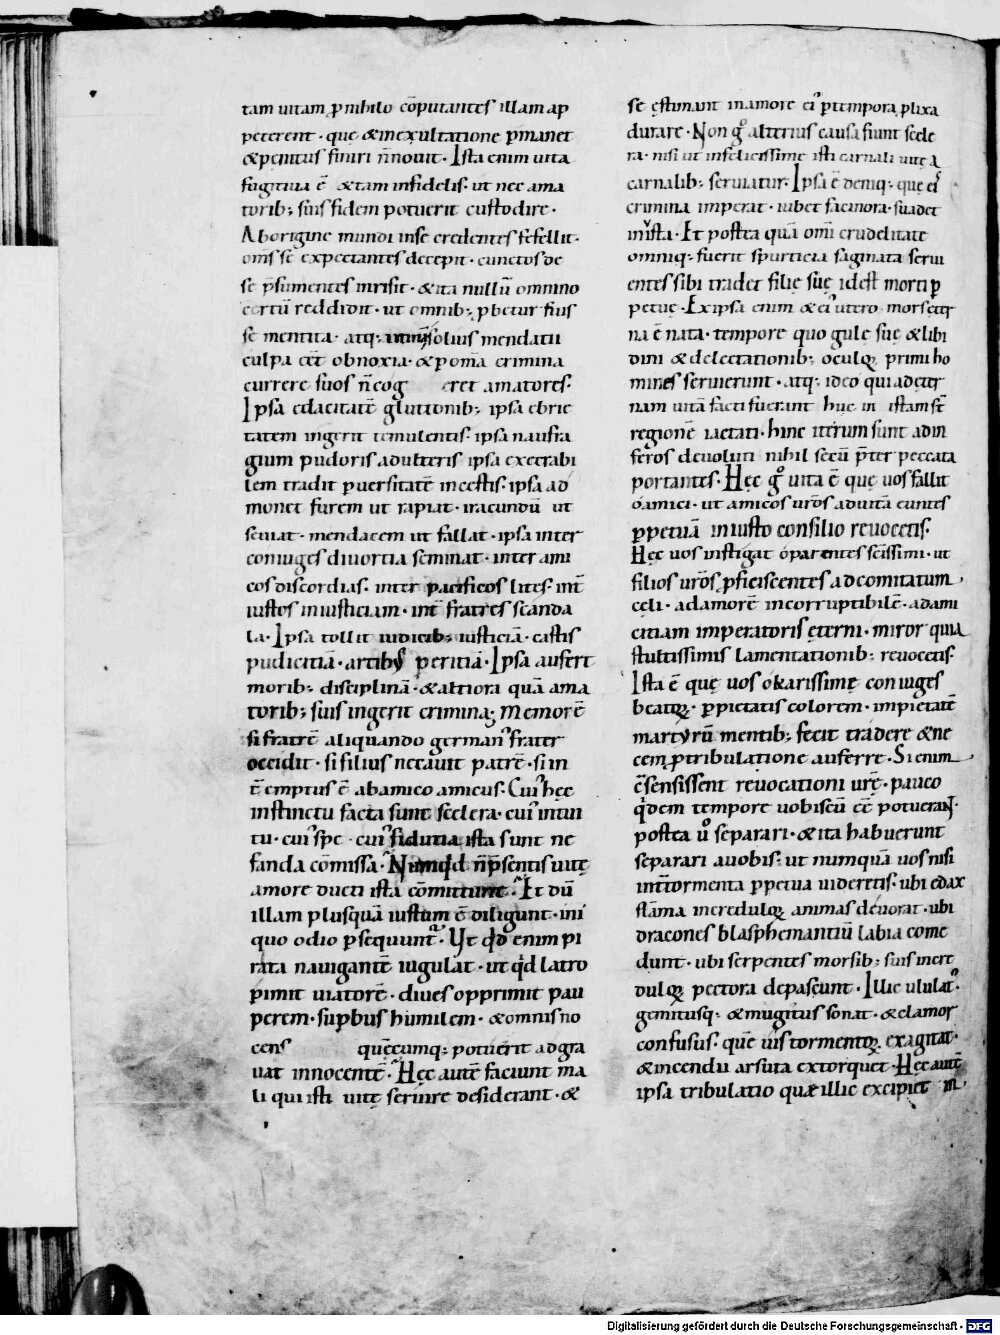 tam uitam ꝓnihilo cōputantes illam ap
peterent · quę & inexultatione ꝑmanet
& penitus finiri n̄nouit · Ista enim uita
fugitiua ē & tam infidelis · ut nec ama
torib; suis fidem potuerit custodire ·
Aborigine mundi inse credentes fefellit ·
om̄s sē expectantes decepit · cunctos de
se p̄sumentes irrisit · & ita nullū omnino
certū reddidit · ut omnib; ꝓbetur fuisse
se mentita · atq; solius mendatii
culpa eēt obnoxia · & p om̄a crimina
currere suos n̄ cog eret amatores ·
Ipsa edacitatē glutionib; ipsa ebrie
tatem ingerit temulentis · ipsa naufra
gium pudoris adulteris ipsa execrabi
lem tradit ꝑuersitatē incestis · ipsa ad
monet furem ut rapiat · iracundū ut
seuiat · mendacem ut fallat · ipsa inter
coniuges diuortia seminat · inter ami
cos discordias · inter pacificos lites · int̄
iustos iniusticiam · int̄ fratres scanda
la · Ipsa tollit iudicib; iusticiā · castis
pudicitiā · artibus peritiā · Ipsa aufert
morib; disciplinā · & altiora quā ama
torib; suis ingerit crimina; Memorē
si fratrē aliquando germanꝰ frater
occidit · si filius necauit patrē · si in
tēemptus ē abamico amicus · Cuiꝰ hęc
instinctu facta sunt scelera · cuiꝰ intui
tu · cuiꝰ spe · cuiꝰ fidutia ista sunt ne
fanda cōmissa · Numqd n̄ p̄sentis uitę
amore ducti ista cōmittunt · Et dū
illam plusquā iustum ē diligunt · ini
quo odio ꝑsequunt · Vt qd enim pi
rata nauigantē iugulat · ut qd latro
pimit uiatorē · diues opprimit pau
perem · supbus humilem · & omnis no
cens quęcumq; potuerit adgra
uat innocentē · Hęc autē faciunt ma
li qui isti uitę seruire desiderant · &
se ęstimant inamore eiꝰ ꝑtempora ꝓlixa
durare · Non gͦ alterius causa fiunt scele
ra · nisi ut infelicissime isti carnali uitę a
carnalib; seruiatur · Ipsa ē deniq; quę eī
crimina imperat · iubet facinora · suadet
iniusta · Et postea quā omi crudelitate
omniq; fuerit spurticia saginata serui
entes sibi tradet filię suę idest morti ꝑ
petuę · Exipsa enim & eiꝰ utero mors ęter
na ē nata · tempore quo gulę suę & libi
dini & delectationib; oculoꝝ primi ho
mines seruierunt · atq; ideo qui adęter
nam uitā facti fuerant huc in istam sē
regionē iactati · hinc iterum sunt adin
feros deuoluti nihil secū p̄ter peccata
portantes · Hęc gͦ uita ē quę uos fallit
o amici · ut amicos urōs aduitā euntes
ꝑpetuā iniusto consilio reuocetis ·
Hęc uos instigat o parentes sc̄issimi · ut
filios urōs ꝓficiscentes adcomitatum
cęli · adamorē incorruptibilē · adami
citiam imperatoris ęterni · miror quia
stultissimis lamentationib; reuocetis ·
Ista ē quę uos o karissimę coniuges
beatoꝝ · ꝑpietatis colorem · impietatē
martyrū mentib; fecit tradere & ne
cem ꝑtribulatione aufferre · Si enim
ēsensissent reuocationi urę̄ · pauco
qdem tempore uobiscū eē potuerant ·
postea uͦ separari · & ita habuerunt
separari auobis; ut numquā uos nisi
int̄ tormenta ꝑpetua uideretis · ubi edax
flāma incredulorꝝ animas deuorat · ubi
dracones blasphemantiū labia come
dunt · ubi serpentes morsib; suis incre
duloꝝ pectora depascunt · Illic ululatꝰ ·
gemitusq; & mugitus sonat · & clamor
confusus · quē uis tormentoꝝ exagitat ·
& incendii arsura extorquet · Hęc autē
ipsa tribulatio quæ illic excipiet in
Digitalisierung gefördert durch die Deutsche Forschungsgemeinschaft - DFG